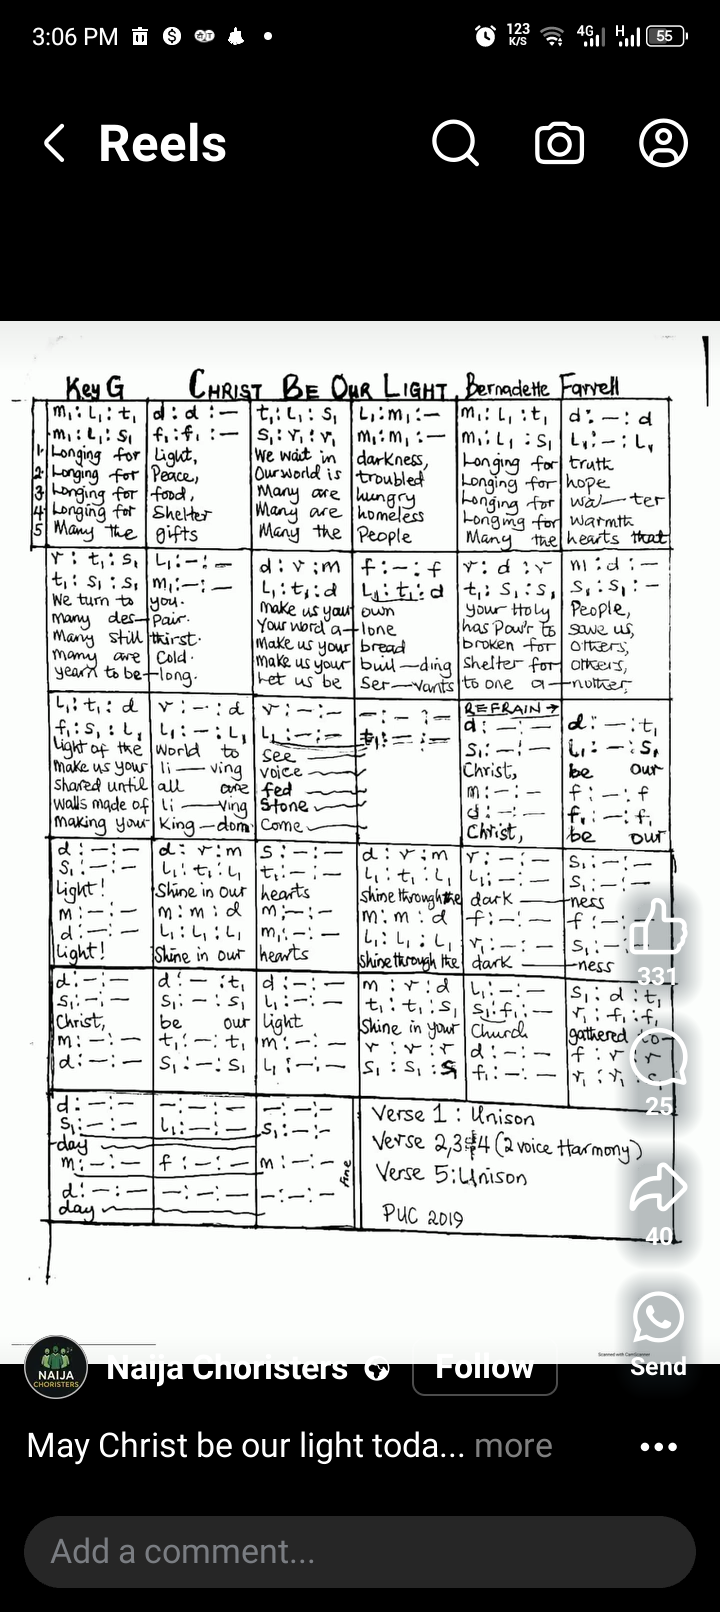 3:06 PM
123 K/S 4G H 55
Reels
Key G CHRIST BE OUR LIGHT Bernadette Farrell
m₁: l₁: t₁ | d: d: — | t₁: l₁: s₁ | l₁: m₁: — | m₁: l₁: t₁ | d: —: d
m₁: l₁: s₁ | f₁: f₁: — | s₁: r₁: r₁ | m₁: m₁: — | m₁: l₁: s₁ | l₁: —: l₁
1 Longing for | Light, | We wait in | darkness, | Longing for | truth
2 Longing for | Peace, | Our world is | troubled | Longing for | hope
3 Longing for | food, | Many are | hungry | Longing for | wa — ter
4 Longing for | Shelter | Many are | homeless | Longing for | warmth
5 Many the | gifts | Many the | People | Many the | hearts that
r: t₁: s₁ | l₁: —: — | d: r: m | f: —: f | r: d: r | m: d: —
t₁: s₁: s₁ | m₁: —: — | l₁: t₁: d | l₁: t₁: d | t₁: s₁: s₁ | s₁: s₁: —
We turn to | you. | make us your | own | your Holy | People,
many des— | Pair. | Your word a— | lone | has Pow'r to | save us,
Many still | thirst. | Make us your | bread | broken for | others,
many are | Cold. | make us your | buil — ding | shelter for | others,
yearn to be— | long. | Let us be | Ser — vants | to one a— | nother,
REFRAIN →
l₁: t₁: d | r: —: d | r: —: — | —: —: — | d: —: — | d: —: t₁
f₁: s₁: l₁ | l₁: —: l₁ | l₁: —: — | t₁: —: — | s₁: —: — | l₁: —: s₁
Light of the | World to | see | Christ, | be our
make us your | li — ving | voice | m: —: — | f: —: f
Shared until | all are | fed | d: —: — | f₁: —: f₁
walls made of | li — ving | Stone | Christ, | be our
making your | King — dom | Come
d: —: — | d: r: m | s: —: — | d: r: m | r: —: — | s₁: —: —
s₁: —: — | l₁: t₁: l₁ | t₁: —: — | l₁: t₁: l₁ | l₁: —: — | s₁: —: —
Light! | Shine in our | hearts | Shine through the | dark — | ness
m: —: — | m: m: d | m: —: — | m: m: d | f: —: — | f: —: —
d: —: — | l₁: l₁: l₁ | m₁: —: — | l₁: l₁: l₁ | r₁: —: — | s₁: —: —
Light! | Shine in our | hearts | shine through the | dark — | ness
d: —: — | d: —: t₁ | d: —: — | m: r: d | l₁: —: — | s₁: d: t₁
s₁: —: — | s₁: —: s₁ | l₁: —: — | t₁: t₁: s₁ | s₁: f₁: — | r₁: f₁: f₁
Christ, | be our | light | Shine in your | Church | gathered to-
m: —: — | t₁: —: t₁ | m: —: — | r: r: r | d: —: — | f: r: r
d: —: — | s₁: —: s₁ | l₁: —: — | s₁: s₁: s | f₁: —: — | r₁: r₁: s₁
d: —: — | —: —: — | —: —: —
s₁: —: — | l₁: —: — | s₁: —: —
-day
m: —: — | f: —: — | m: —: —
d: —: — | —: —: — | —: —: —
day
fine
Verse 1: Unison
Verse 2,3 4 (2 voice Harmony)
Verse 5: Unison
PUC 2019
331
25
40
Send
Scanned with CamScanner
NAIJA
CHORISTERS
Naija Choristers
Follow
May Christ be our light toda... more
Add a comment...